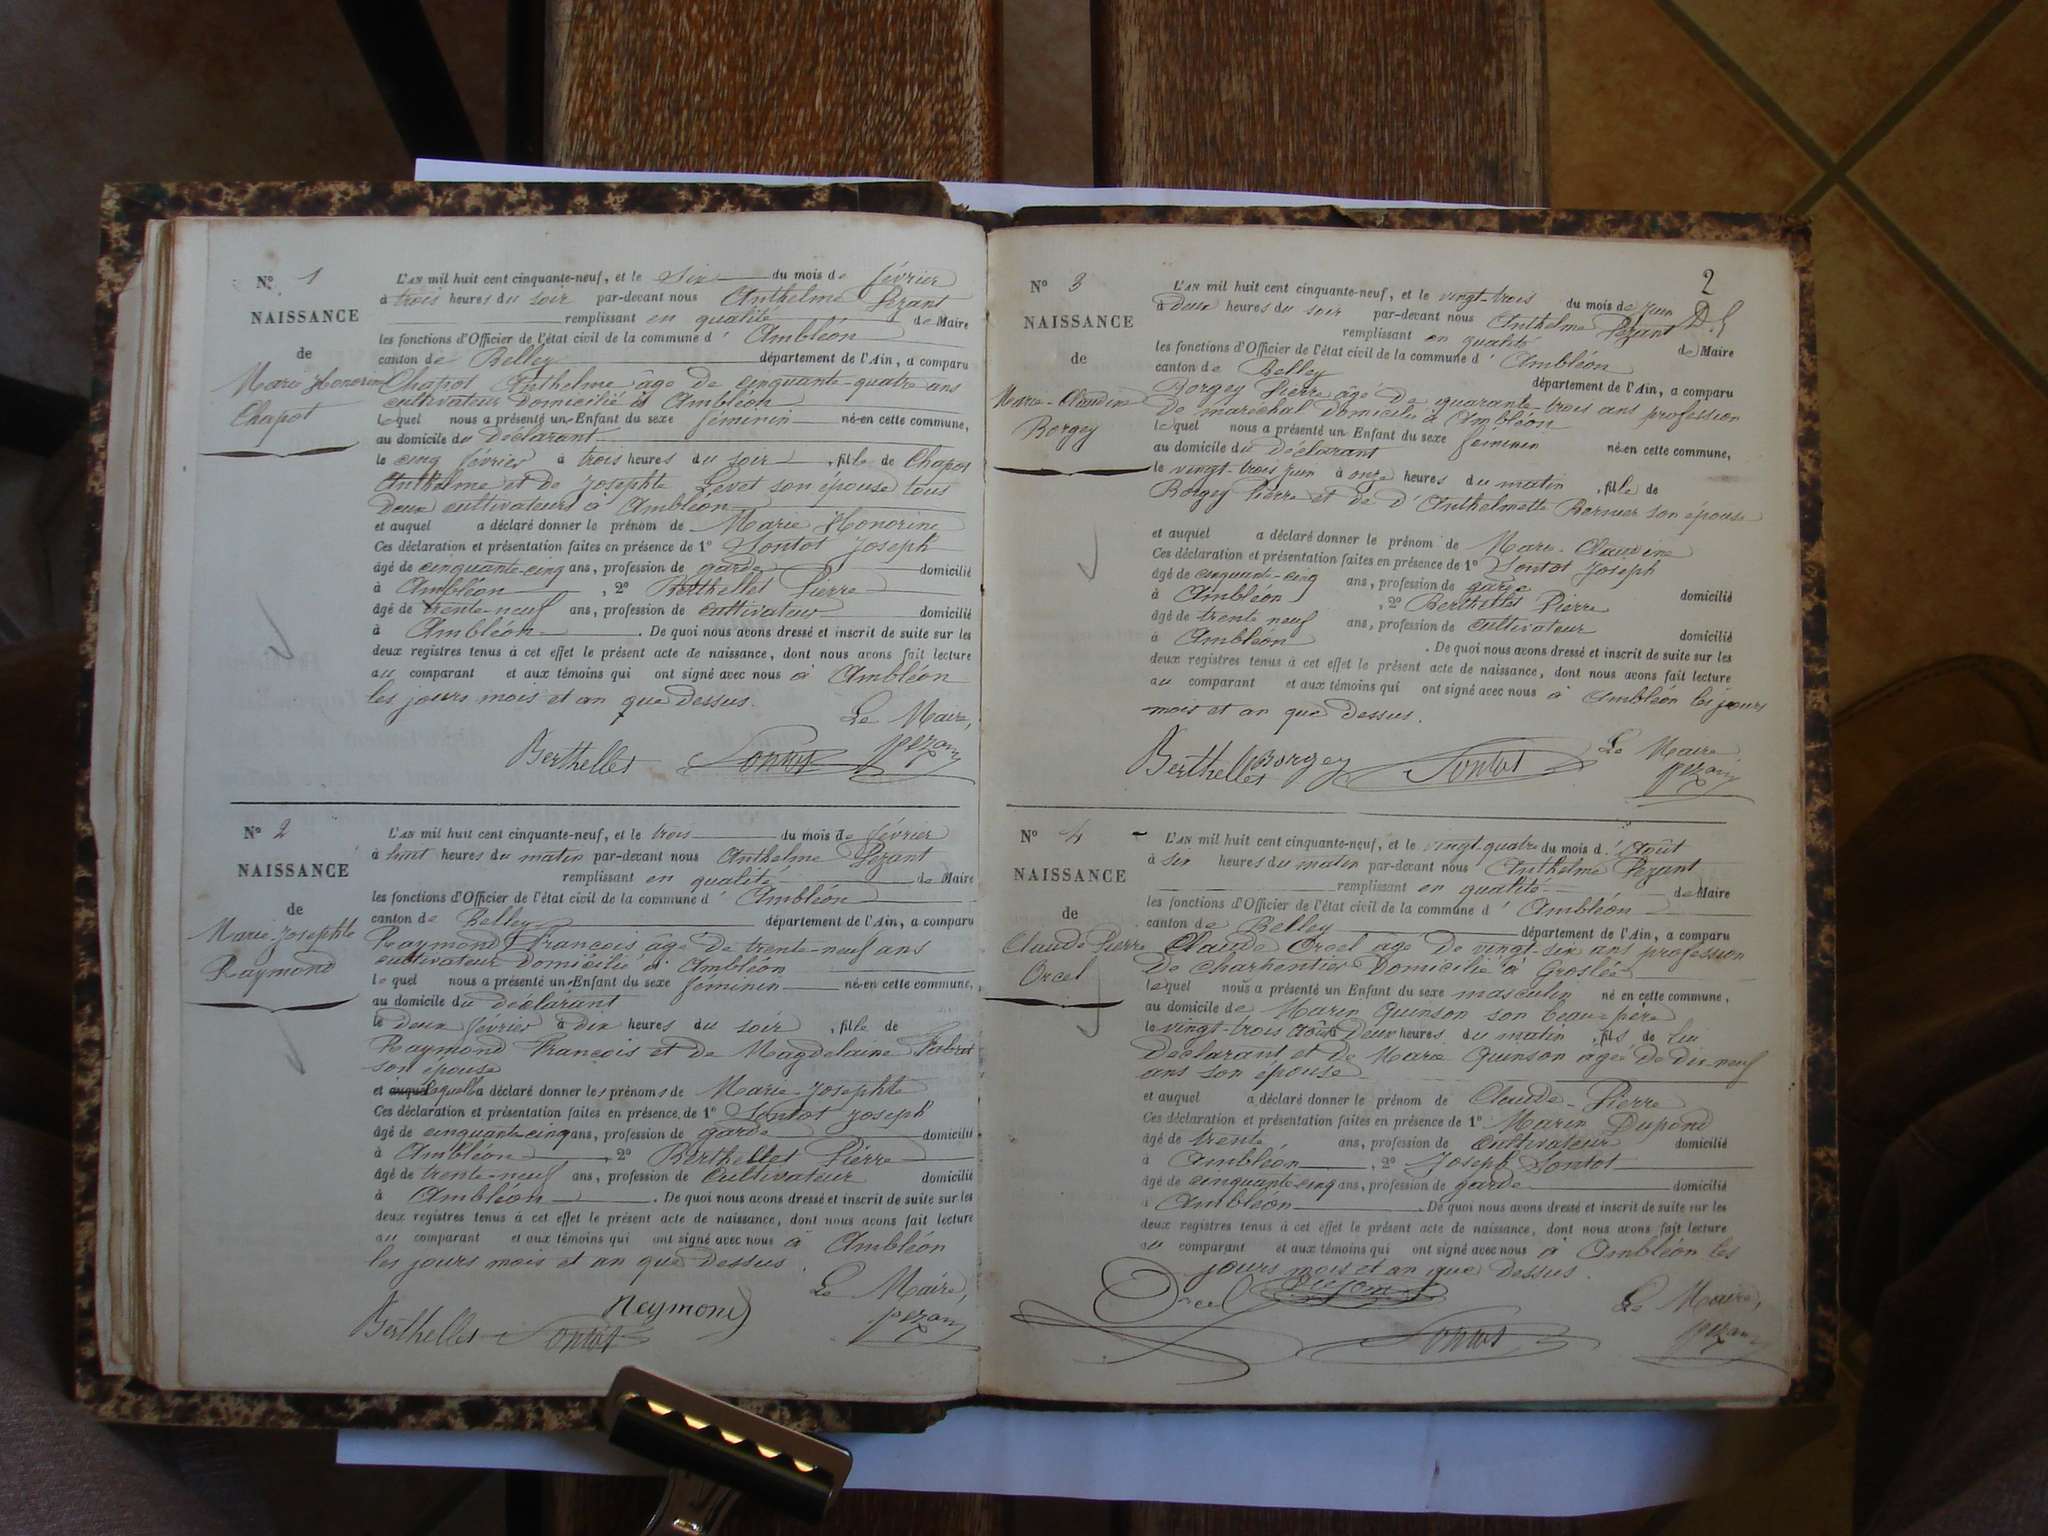 N° 1
NAISSANCE
de
Marie Honorine
Chapot
L'AN mil huit cent cinquante-neuf, et le Six du mois de février
à trois heures du soir par-devant nous Anthelme Pezant
remplissant en qualité de Maire
les fonctions d'Officier de l'état civil de la commune d' Ambléon
canton de Belley département de l'Ain, a comparu
Chapot Anthelme âgé de cinquante-quatre ans
cultivateur Domicilié à Ambléon
lequel nous a présenté un Enfant du sexe féminin né en cette commune,
au domicile du Déclarant
le cinq février à trois heures du soir, fille de Chapot
Anthelme et de Josephte Levet son épouse tous
Deux cultivateurs à Ambléon
et auquel a déclaré donner le prénom de Marie Honorine
Ces déclaration et présentation faites en présence de 1° Sontot Joseph
âgé de cinquante-cinq ans, profession de garde domicilié
à Ambléon, 2° Berthellet Pierre
âgé de trente-neuf ans, profession de cultivateur domicilié
à Ambléon. De quoi nous avons dressé et inscrit de suite sur les
deux registres tenus à cet effet le présent acte de naissance, dont nous avons fait lecture
au comparant et aux témoins qui ont signé avec nous à Ambléon
les jours mois et an que Dessus.
Le Maire,
Berthellet Sontot Pezant
N° 2
NAISSANCE
de
Marie Josephte
Raymond
L'AN mil huit cent cinquante-neuf, et le trois du mois de février
à huit heures du matin par-devant nous Anthelme Pezant
remplissant en qualité de Maire
les fonctions d'Officier de l'état civil de la commune d' Ambléon
canton de Belley département de l'Ain, a comparu
Raymond François âgé de trente-neuf ans
cultivateur Domicilié à Ambléon
lequel nous a présenté un Enfant du sexe féminin né en cette commune,
au domicile du déclarant
le deux février à dix heures du soir, fille de
Raymond François et de Magdelaine
son épouse
et auquel a déclaré donner les prénoms de Marie-Josephte
Ces déclaration et présentation faites en présence de 1° Sontot Joseph
âgé de cinquante-cinq ans, profession de garde domicilié
à Ambléon, 2° Berthellet Pierre
âgé de trente-neuf ans, profession de Cultivateur domicilié
à Ambléon. De quoi nous avons dressé et inscrit de suite sur les
deux registres tenus à cet effet le présent acte de naissance, dont nous avons fait lecture
au comparant et aux témoins qui ont signé avec nous à Ambléon
les jours mois et an que Dessus.
Le Maire,
Berthellet Sontot Reymond Pezant
2
N° 3
NAISSANCE
de
Marie-Claudine
Borgey
L'AN mil huit cent cinquante-neuf, et le vingt-trois du mois de juin
à Deux heures du soir par-devant nous Anthelme Pezant
remplissant en qualité de Maire
les fonctions d'Officier de l'état civil de la commune d' Ambléon
canton de Belley département de l'Ain, a comparu
Borgey Pierre âgé de quarante-trois ans profession
De maréchal domicilié à Ambléon
lequel nous a présenté un Enfant du sexe féminin né en cette commune,
au domicile du déclarant
le vingt-trois juin à onze heures du matin, fille de
Borgey Pierre et de d'Anthelmette Bernier son épouse
et auquel a déclaré donner le prénom de Marie-Claudine
Ces déclaration et présentation faites en présence de 1° Sontot Joseph
âgé de cinquante-cinq ans, profession de garde
à Ambléon, 2° Berthellet Pierre domicilié
âgé de trente neuf ans, profession de cultivateur
à Ambléon domicilié
. De quoi nous avons dressé et inscrit de suite sur les
deux registres tenus à cet effet le présent acte de naissance, dont nous avons fait lecture
au comparant et aux témoins qui ont signé avec nous à Ambléon les jours
mois et an que dessus.
Le Maire
Berthellet Borgey Sontot Pezant
N° 4
NAISSANCE
de
Claude Pierre
Orcel
L'AN mil huit cent cinquante-neuf, et le vingt-quatre du mois d'Août
à six heures du matin par-devant nous Anthelme Pezant
remplissant en qualité de Maire
les fonctions d'Officier de l'état civil de la commune d' Ambléon
canton de Belley département de l'Ain, a comparu
Claude Orcel âgé de vingt-six ans profession
De charpentier Domicilié à Groslée
lequel nous a présenté un Enfant du sexe masculin né en cette commune,
au domicile de Marin Quinson son beau-père
le vingt-trois Août à Deux heures du matin, fils de lui
Déclarant et de Marie Quinson agée de Dix neuf
ans son épouse
et auquel a déclaré donner le prénom de Claude-Pierre
Ces déclaration et présentation faites en présence de 1° Marin Dupond
âgé de trente ans, profession de Cultivateur domicilié
à Ambléon, 2° Joseph Sontot
âgé de cinquante-cinq ans, profession de garde domicilié
à Ambléon. De quoi nous avons dressé et inscrit de suite sur les
deux registres tenus à cet effet le présent acte de naissance, dont nous avons fait lecture
au comparant et aux témoins qui ont signé avec nous à Ambléon les
jours mois et an que Dessus.
Le Maire,
Orcel Sontot Pezant